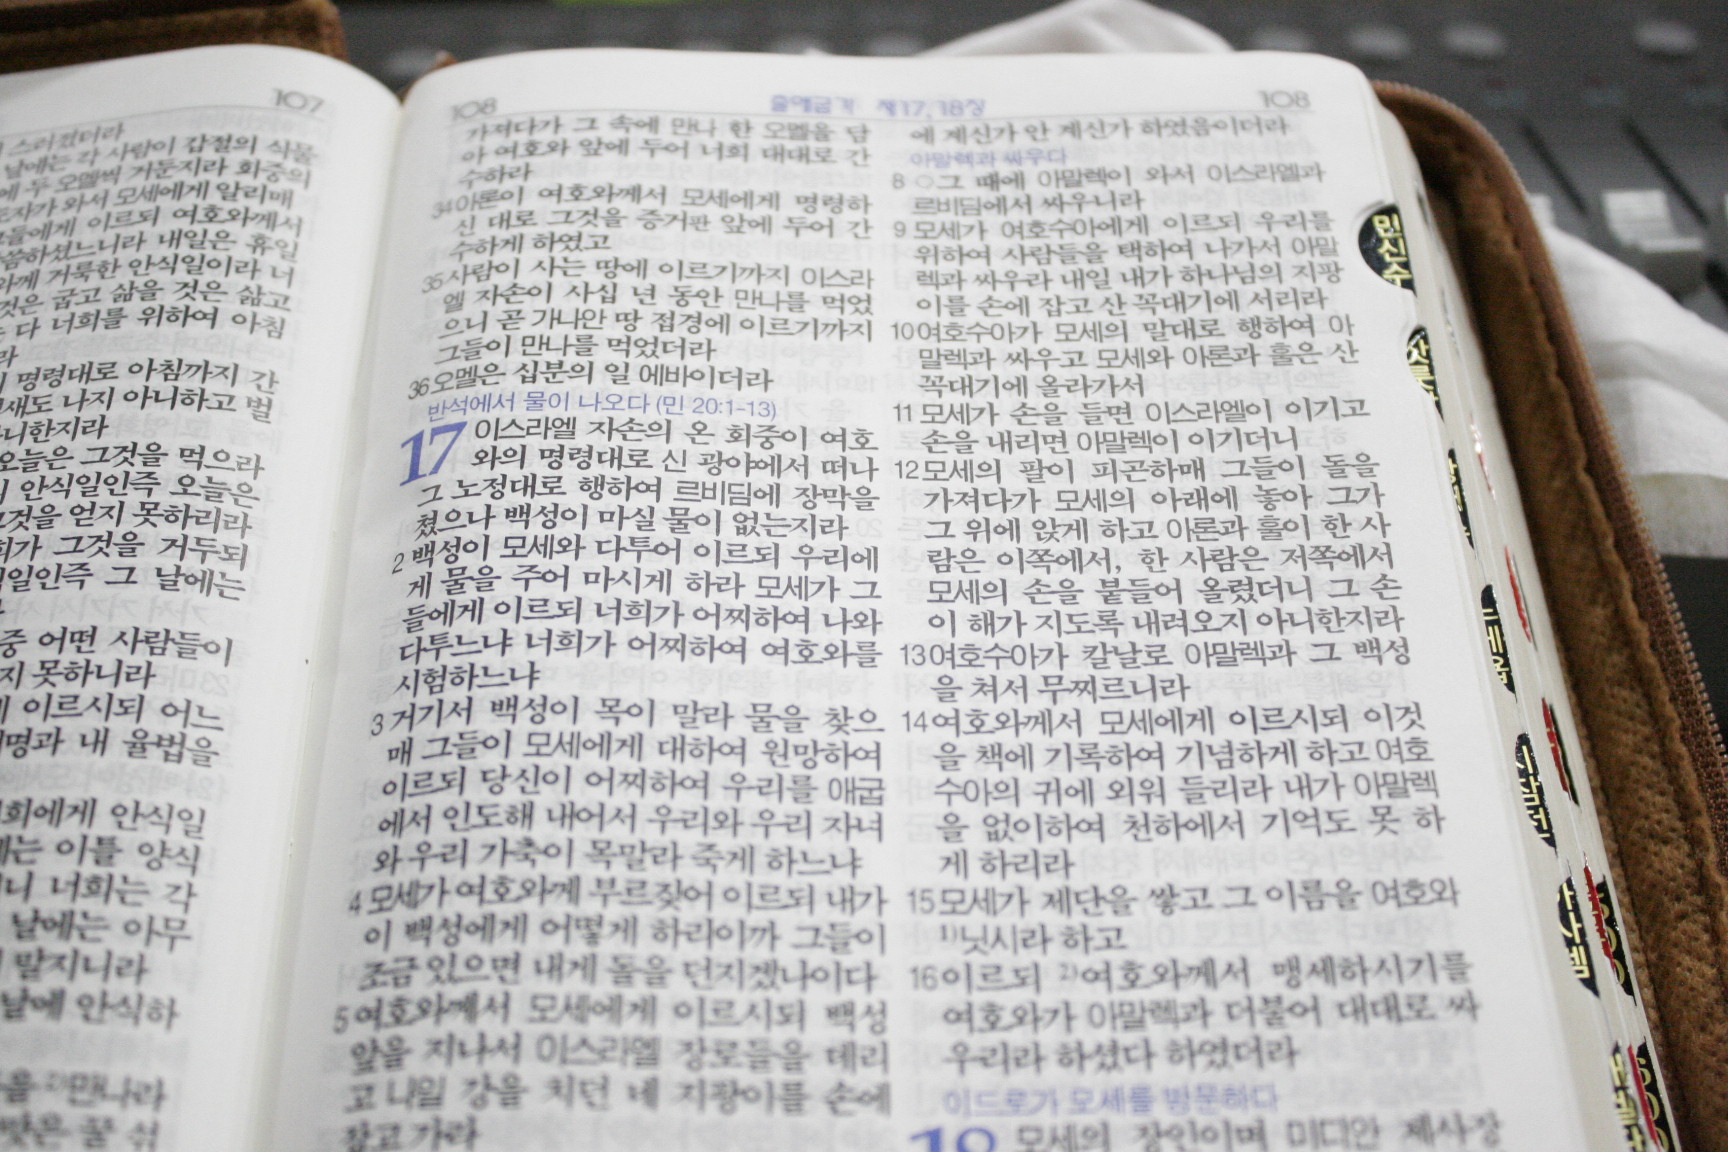 107
스리졌더라
날에는 각 사람이 갑절의 식물
에 두 오멜씩 거둔지라 회중의
와서 모세에게 알리매
이르되 여호와께서
내일은 휴일
거룩한 안식일이라 너
것은 굽고 삶을 것은 삶고
다 너희를 위하여 아침
라
명령대로 아침까지 간
나지 아니하고 벌
오늘은 그것을 먹으라
안식일인즉 오늘은
얻지 못하리라
그것을 거두되
그 날에는
중 어떤 사람들이
지 못하니라
이르시되 어느
내 율법을
안식일
이틀 양식
너희는 각
날에는 아무
말지니라
날에 안식하
만나라
108
출애굽기 제17,18장
108
가져다가 그 속에 만나 한 오멜을 담
아 여호와 앞에 두어 너희 대대로 간
수하라
34 아론이 여호와께서 모세에게 명령하
신 대로 그것을 증거판 앞에 두어 간
수하게 하였고
35 사람이 사는 땅에 이르기까지 이스라
엘 자손이 사십 년 동안 만나를 먹었
으니 곧 가나안 땅 접경에 이르기까지
그들이 만나를 먹었더라
36 오멜은 십분의 일 에바이더라
반석에서 물이 나오다 (민 20:1-13)
17 이스라엘 자손의 온 회중이 여호
와의 명령대로 신 광야에서 떠나
그 노정대로 행하여 르비딤에 장막을
쳤으나 백성이 마실 물이 없는지라
2 백성이 모세와 다투어 이르되 우리에
게 물을 주어 마시게 하라 모세가 그
들에게 이르되 너희가 어찌하여 나와
다투느냐 너희가 어찌하여 여호와를
시험하느냐
3 거기서 백성이 목이 말라 물을 찾으
매 그들이 모세에게 대하여 원망하여
이르되 당신이 어찌하여 우리를 애굽
에서 인도해 내어서 우리와 우리 자녀
와 우리 가축이 목말라 죽게 하느냐
4 모세가 여호와께 부르짖어 이르되 내가
이 백성에게 어떻게 하리이까 그들이
조금 있으면 내게 돌을 던지겠나이다
5 여호와께서 모세에게 이르시되 백성
앞을 지나서 이스라엘 장로들을 데리
고 나일 강을 치던 네 지팡이를 손에
잡고 가라
에 계신가 안 계신가 하였음이더라
아말렉과 싸우다
8 ○그 때에 아말렉이 와서 이스라엘과
르비딤에서 싸우니라
9 모세가 여호수아에게 이르되 우리를
위하여 사람들을 택하여 나가서 아말
렉과 싸우라 내일 내가 하나님의 지팡
이를 손에 잡고 산 꼭대기에 서리라
10 여호수아가 모세의 말대로 행하여 아
말렉과 싸우고 모세와 아론과 훌은 산
꼭대기에 올라가서
11 모세가 손을 들면 이스라엘이 이기고
손을 내리면 아말렉이 이기더니
12 모세의 팔이 피곤하매 그들이 돌을
가져다가 모세의 아래에 놓아 그가
그 위에 앉게 하고 아론과 훌이 한 사
람은 이쪽에서, 한 사람은 저쪽에서
모세의 손을 붙들어 올렸더니 그 손
이 해가 지도록 내려오지 아니한지라
13 여호수아가 칼날로 아말렉과 그 백성
을 쳐서 무찌르니라
14 여호와께서 모세에게 이르시되 이것
을 책에 기록하여 기념하게 하고 여호
수아의 귀에 외워 들리라 내가 아말렉
을 없이하여 천하에서 기억도 못 하
게 하리라
15 모세가 제단을 쌓고 그 이름을 여호와
1)닛시라 하고
16 이르되 2)여호와께서 맹세하시기를
여호와가 아말렉과 더불어 대대로 싸
우리라 하셨다 하였더라
이드로가 모세를 방문하다
18 모세의 장인이며 미디안 제사장
민신수